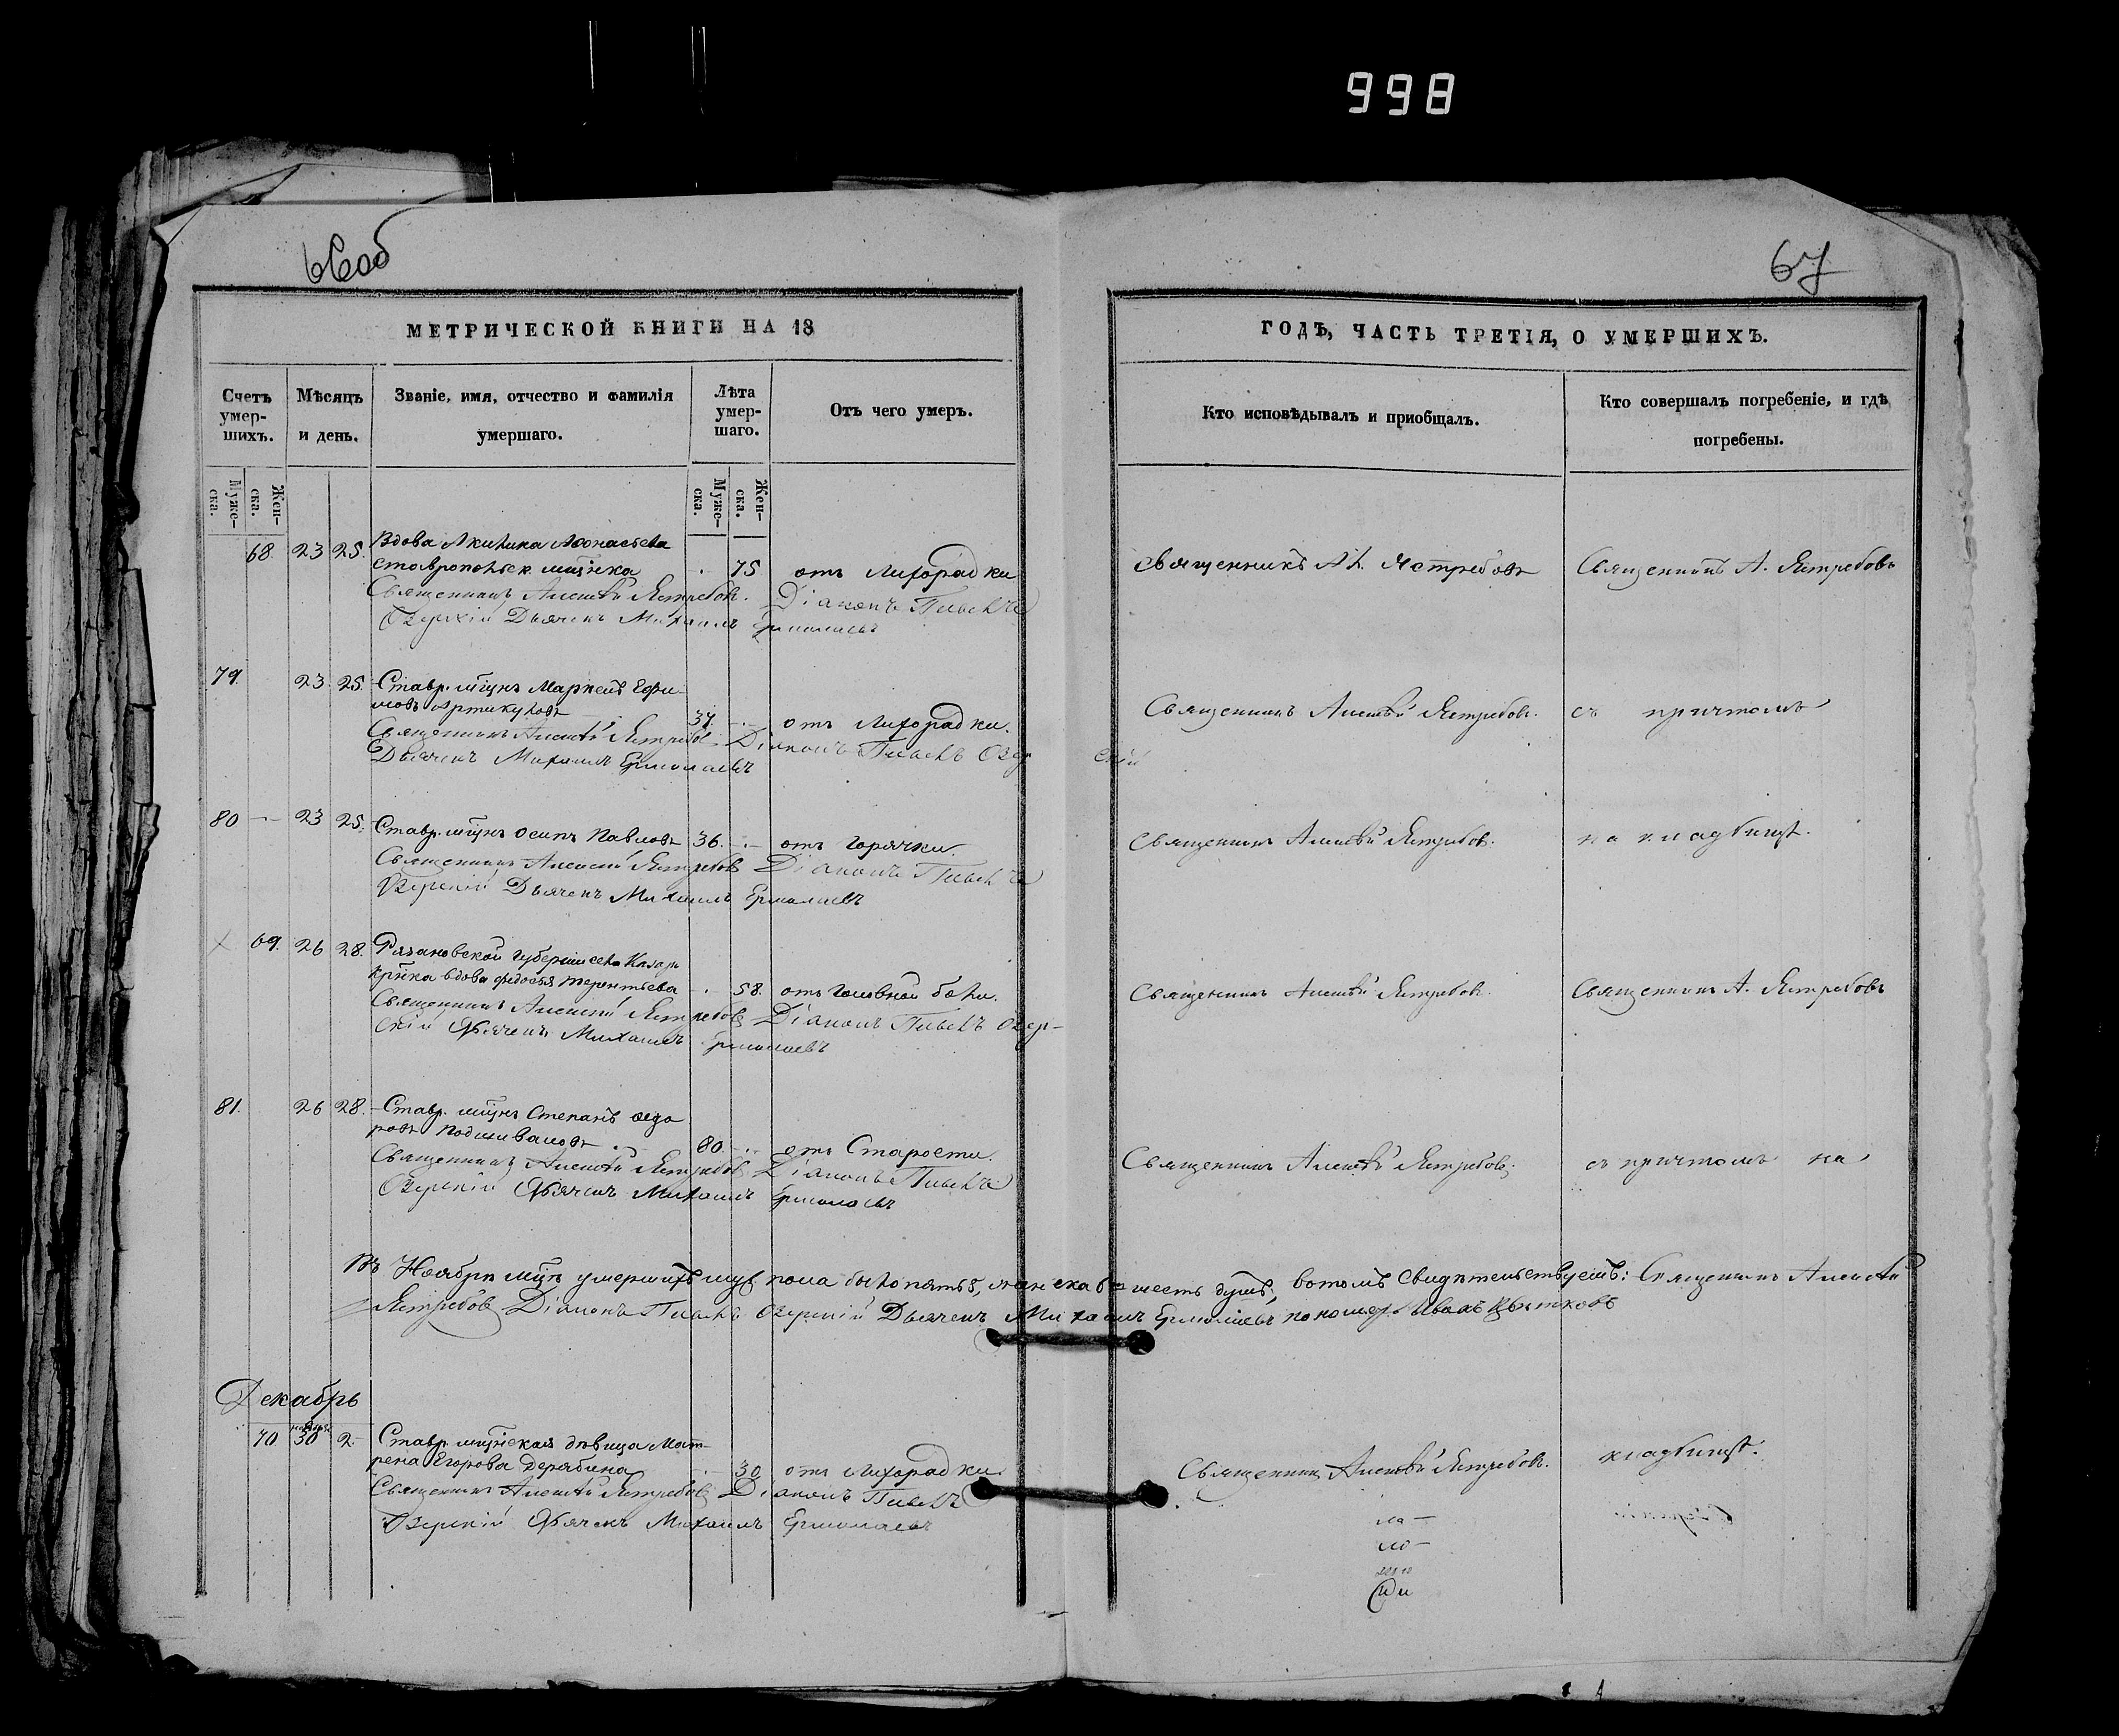 998
66об
67
МЕТРИЧЕСКОЙ КНИГИ НА 18
ГОДЪ, ЧАСТЬ ТРЕТІЯ, О УМЕРШИХЪ.
Счетъ умер-шихъ.
Мѣсяцъ и день.
Званіе, имя, отчество и фамилія умершаго.
Лѣта умер-шаго.
Отъ чего умеръ.
Кто исповѣдывалъ и пріобщалъ.
Кто совершалъ погребеніе, и гдѣ погребены.
Муже-ска.
Жен-ска.
Муже-ска.
Жен-ска.
68. 23 25. Вдова Акилина Афонасьева
ставропольск. мщнка 75 отъ лихорадки Священникъ Ал. Ястребовъ Священникъ А. Ястребовъ
Священникъ Алексѣй Ястребовъ. Діаконъ Павелъ
Озерскій Дьячекъ Михаилъ Ермолаевъ
79. 23. 25. Ставр. мщнъ Маркелъ Ефи-
мовъ Артикуловъ 37. отъ лихорадки. Священникъ Алексѣй Ястребовъ. съ причтомъ
Священникъ Алексѣй Ястребовъ Діаконъ Павелъ Озер
скій
Дьячекъ Михаилъ Ермолаевъ
80 23 25. Ставр. мщнъ Осипъ Павловъ 36. отъ горячки. Священникъ Алексѣй Ястребовъ. на кладбищѣ.
Священникъ Алексѣй Ястребовъ Діаконъ Павелъ
Озерскій Дьячекъ Михаилъ Ермолаевъ
69. 26 28. Рязановской губерніи села
вдова Федосья Терентьева 58. отъ головной боли. Священникъ Алексѣй Ястребовъ. Священникъ А. Ястребовъ
Священникъ Алексѣй Ястребовъ Діаконъ Павелъ Озер-
скій Дьячекъ Михаилъ Ермолаевъ
81. 26 28. Ставр. мщнъ Степанъ Федо
ровъ Подшиваловъ 80. отъ Старости. Священникъ Алексѣй Ястребовъ. съ причтомъ на
Священникъ Алексѣй Ястребовъ. Діаконъ Павелъ
Озерскій Дьячекъ Михаилъ Ермолаевъ
Въ Ноябрѣ мцѣ умершихъ муж. пола было пять, женска шесть душъ, вотомъ свидѣтельствуемъ: Священникъ Алексѣй
Ястребовъ Діаконъ Павелъ Озерскій Дьячекъ Михаилъ Ермолаевъ пономарь Иванъ Цвѣтковъ
Декабрь
ноября
70. 30 2. Ставр. мщнская дѣвица Мат-
рена Егорова Дерябина 30 отъ лихорадки. Священникъ Алексѣй Ястребовъ. кладбищѣ.
Священникъ Алексѣй Ястребовъ Діаконъ Павелъ
Озерскій Дьячекъ Михаилъ Ермолаевъ